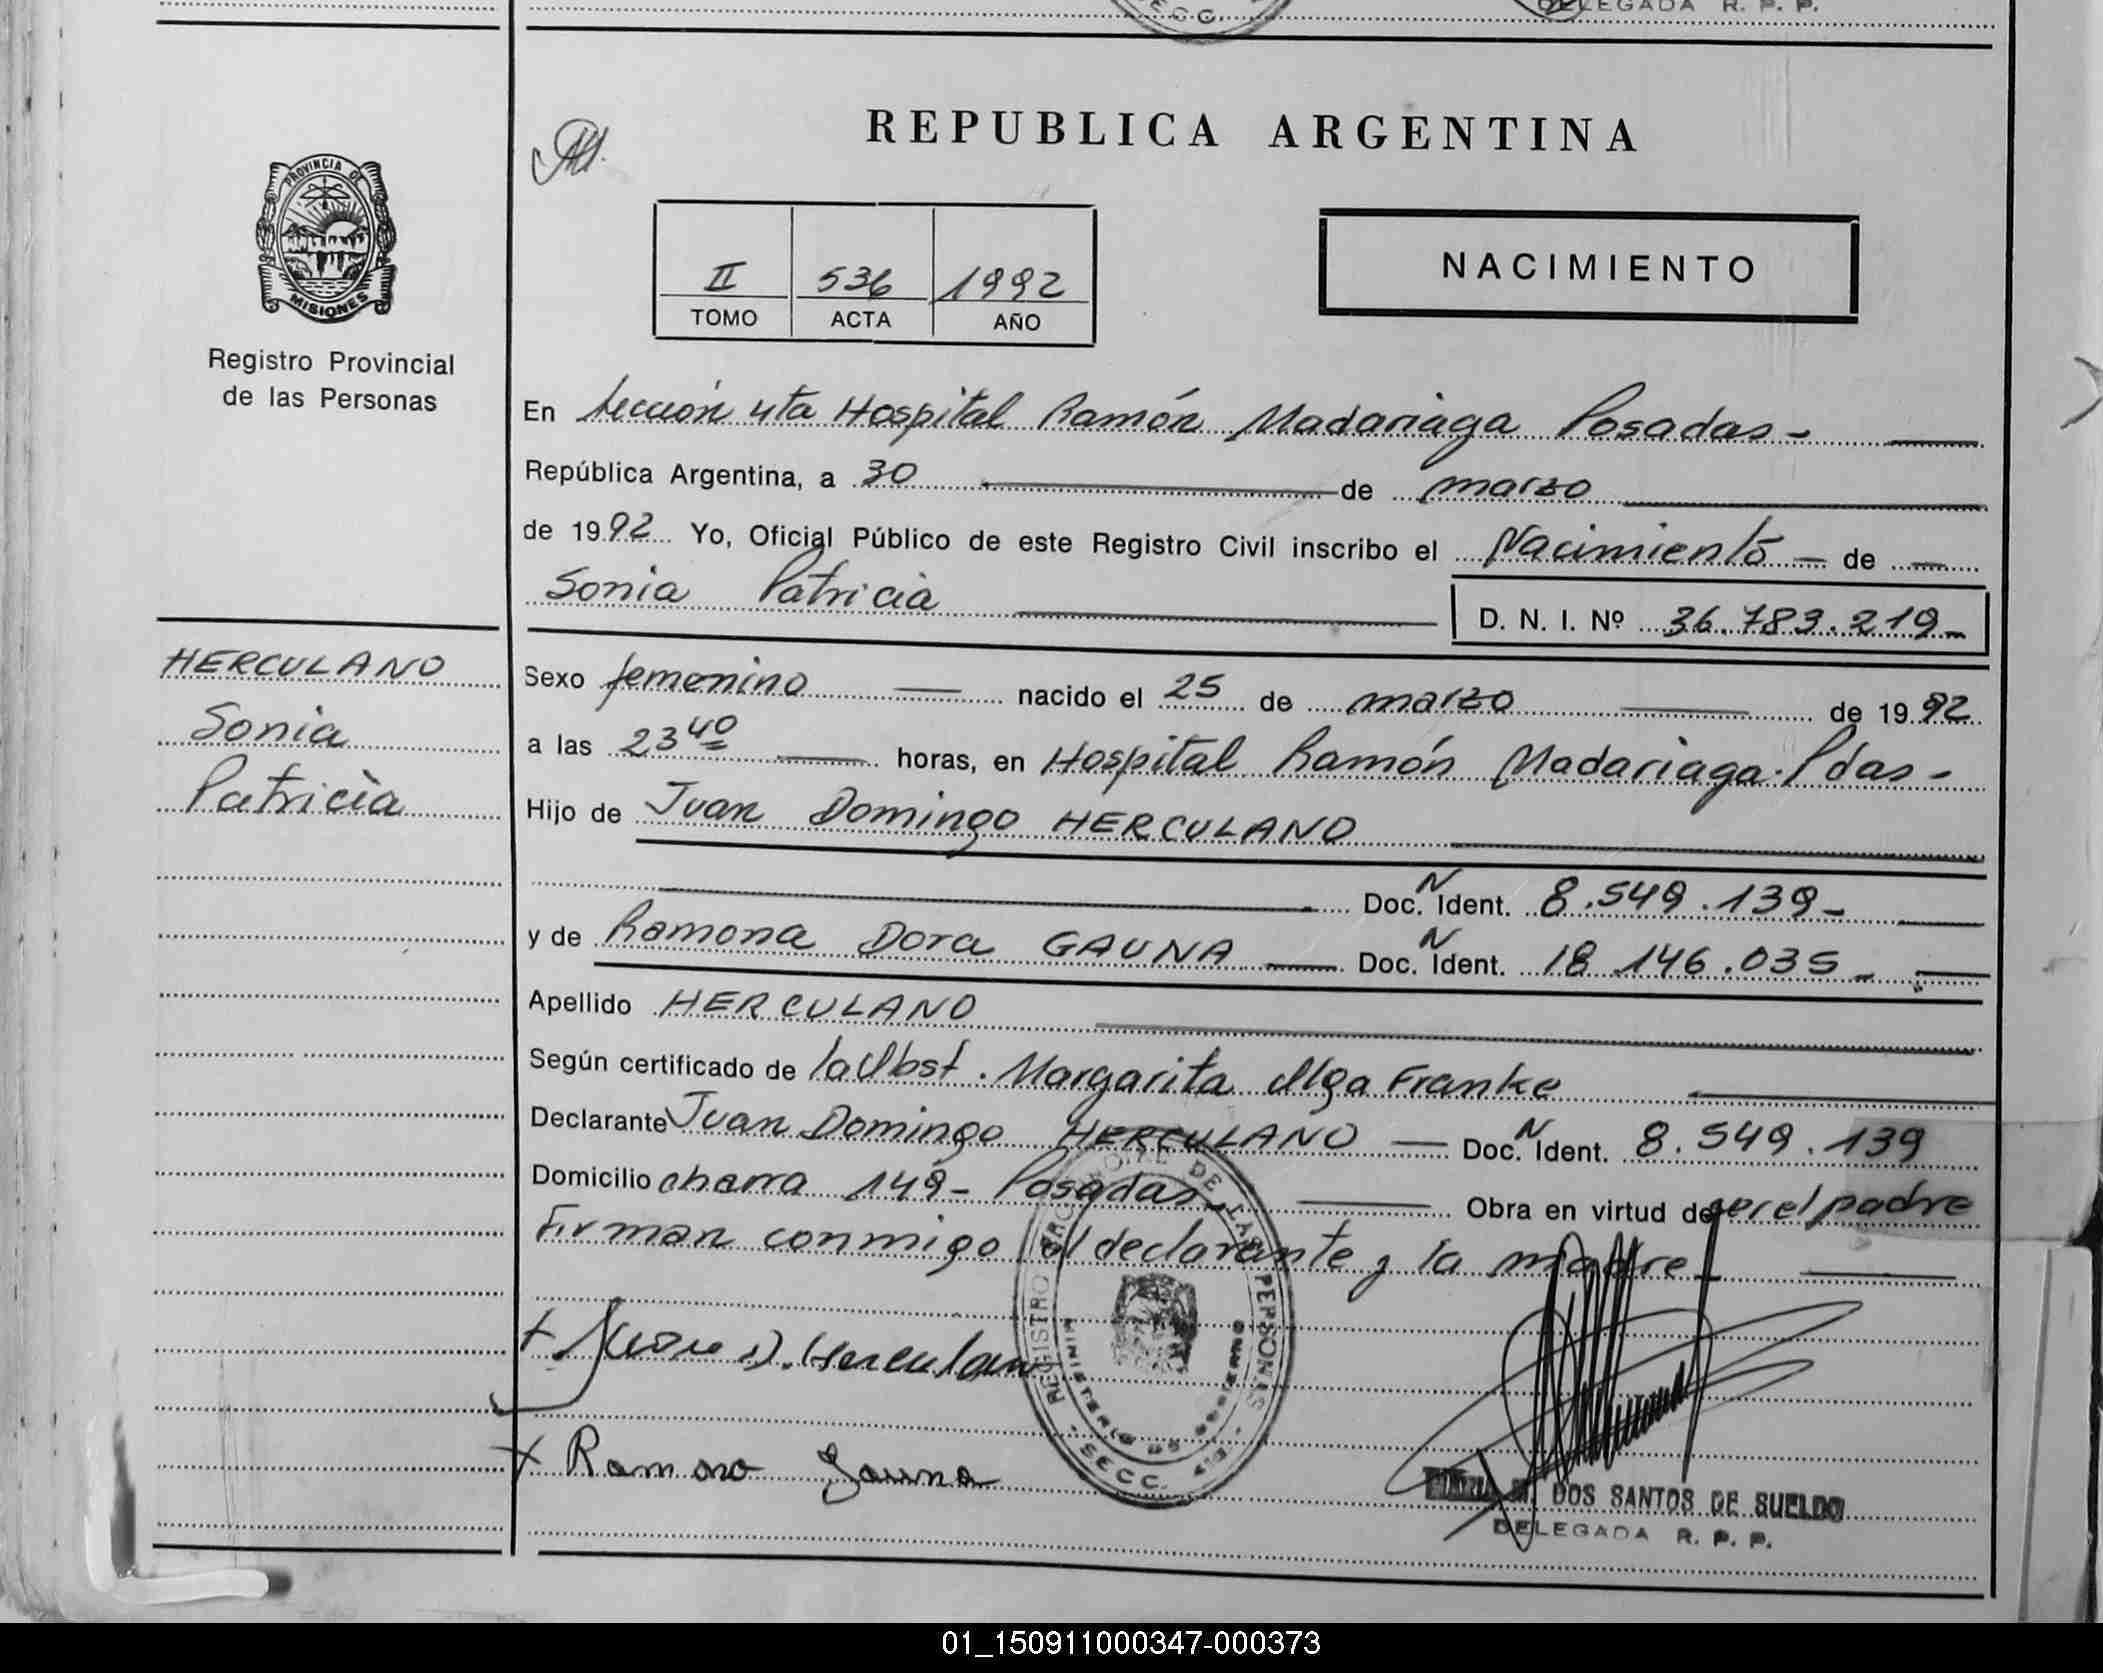 DELEGADA R. P. P.
SECC.
REPUBLICA ARGENTINA
PROVINCIA DE
MISIONES
Registro Provincial
de las Personas
II 536 1992
TOMO ACTA AÑO
NACIMIENTO
En Sección 4ta Hospital Ramón Madariaga Posadas -
República Argentina, a 30 de marzo
de 1992 Yo, Oficial Público de este Registro Civil inscribo el Nacimiento - de
Sonia Patricia
D. N. I. Nº 36.783.219-
HERCULANO
Sonia
Patricia
Sexo femenino nacido el 25 de marzo de 1992
a las 23 40 horas, en Hospital Ramón Madariaga. Pdas-
Hijo de Juan Domingo HERCULANO
Doc. N Ident. 8.549.139-
y de Ramona Dora GAUNA Doc. N Ident. 18.146.035-
Apellido HERCULANO
Según certificado de la Obst. Margarita Olga Franke
Declarante Juan Domingo HERCULANO Doc. N Ident. 8.549.139
Domicilio chacra 149- Posadas- Obra en virtud de ser el padre
Firman conmigo el declarante y la madre-
REGISTRO PROVINCIAL DE LAS PERSONAS
MINISTERIO DE GOBIERNO
SECC. 4ta.
+ Juan D. Herculano
+ Ramona Gauna
DOS SANTOS DE SUELDO
DELEGADA R. P. P.
01_150911000347-000373